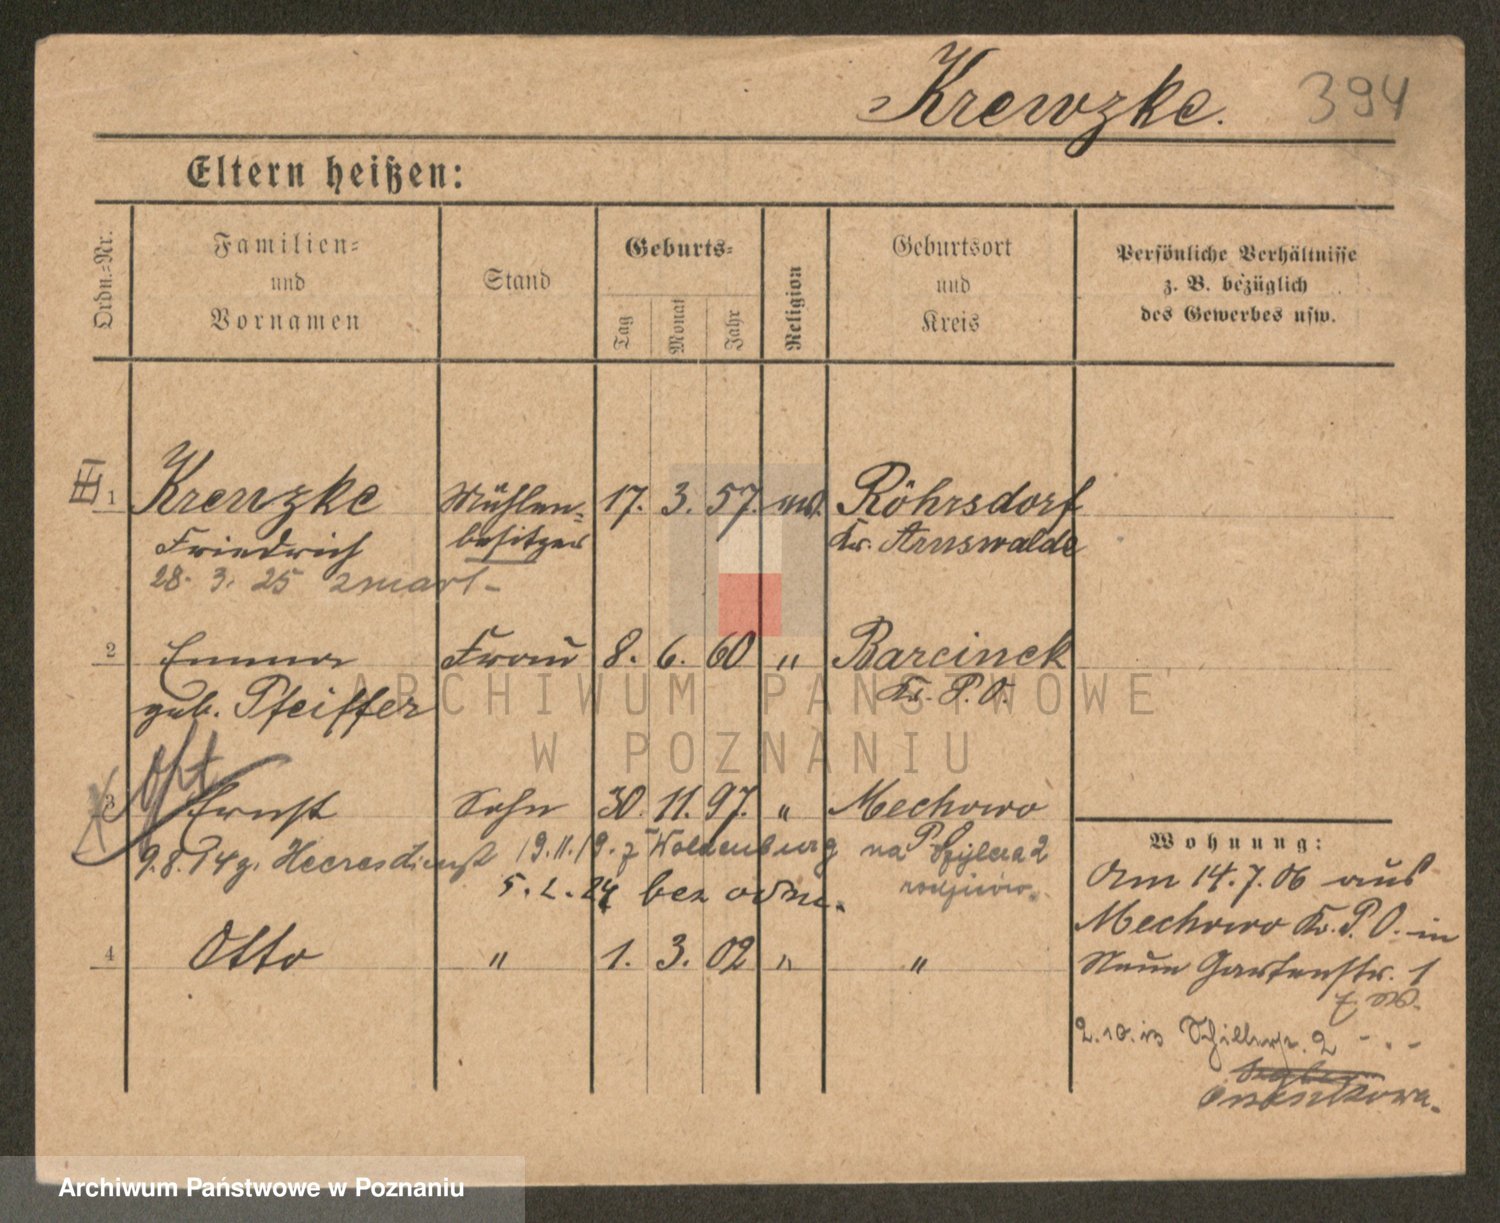 Krenzke. 394
Eltern heißen:
Ordn.=Nr.
Familien=
und
Vornamen
Stand
Geburts=
Tag Monat Jahr
Religion
Geburtsort
und
Kreis
Persönliche Verhältnisse
z. B. bezüglich
des Gewerbes usw.
1 Krenzke Mühlen= 17. 3. 57. Röhrsdorf
Friedrich besitzer Kr. Arnswalde
28. 3. 25 zmarł
2 Emma Frau 8. 6. 60 " Barcinek
geb. Pfeiffer Kr. P. O.
ARCHIWUM PAŃSTWOWE
W POZNANIU
3 Ernst Sohn 30. 11. 97. " Mechowo
9.8.14 z. Heeresdienst 19.11.19. z Woldenburg na Szylera 2
5. 2. 24 bez odm.
4 Otto " 1. 3. 02 " "
Wohnung:
Am 14. 7. 06 aus
Mechowo Kr. P. O. in
Neue Gartenstr. 1
2. 10. 13 Schillerstr. 2
Archiwum Państwowe w Poznaniu